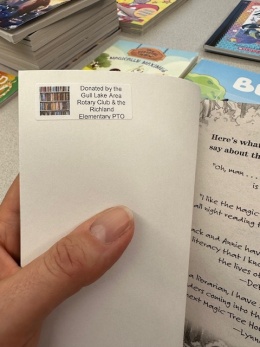 Donated by the
Gull Lake Area
Rotary Club & the
Richland
Elementary PTO
Here's what
say about th
"Oh, man . . .
is
"I like the Magic
all night reading t
ack and Annie have
literacy that I kno
the lives of
a librarian, I have
ders coming into th
next Magic Tree Ho
—Lynn